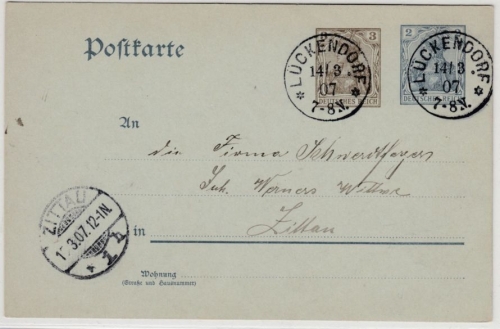 Postkarte
3
2
DEUTSCHES REICH
DEUTSCHES REICH
LÜCKENDORF
14/3
07
7-8.V.
LÜCKENDORF
14/3
07
7-8.V.
An
die Firma Schwerdtfegers
Inh. Werners Witwe
in
Zittau
ZITTAU
3.07.12-1N.
1
Wohnung
(Straße und Hausnummer)